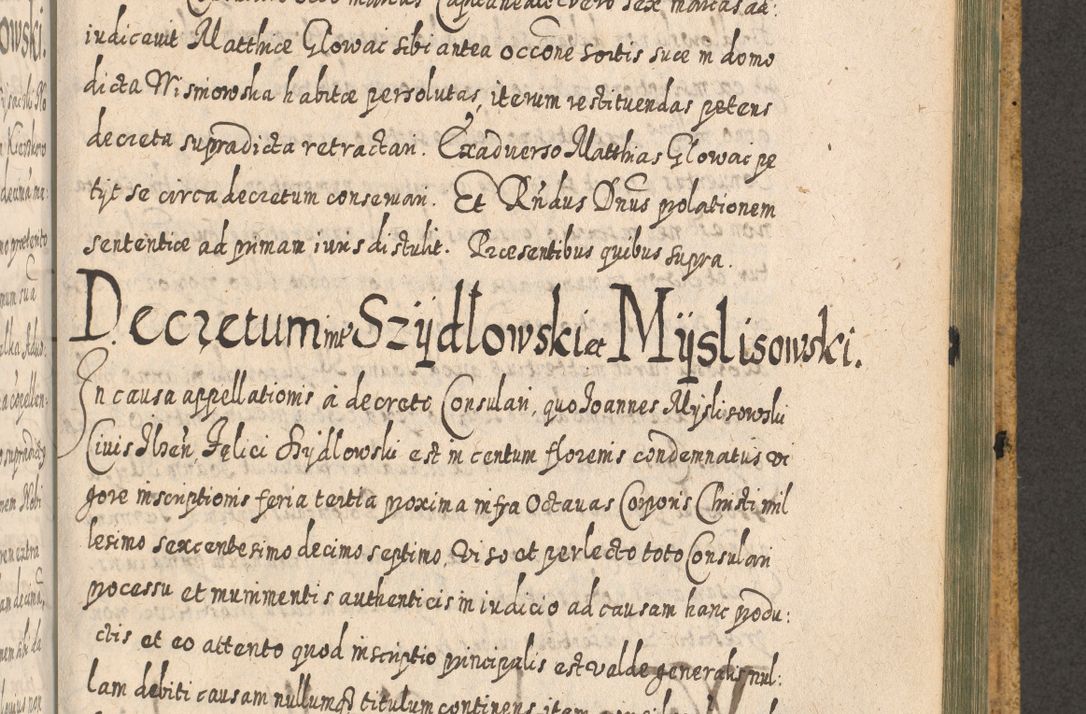 iudicavit Matthiæ Glowac sibi antea occone sortis suæ in domo
dicta Wismowska habitæ persolutas, iterum restituendas petens
decreta supradicta retractari. Exadverso Matthias Glowac pe
tyt se circa decretum conservari. Et Rndus Dnus prolationem
sententiæ ad primam iuris distulit. Præsentibus quibus supra.
Decretum inter Szÿdlowski et Mÿslisowski.
In causa appellationis à decreto Consulari, quo Joannes Myslisowski
Civis Ilzen Felici Szydlowski est in centum florenis condemnatus vi
gore inscriptionis feria tertia proxima infra Octavas Corporis Christi mil
lesimo sexcentesimo decimo septimo, viso et perlecto toto Consulari
processu et munimentis authenticis in iudicio ad causam hanc produ:
ctis et eo attento quod inscriptio principalis est valde generalis nul:
lam debiti causam nullumque titulum continens, item